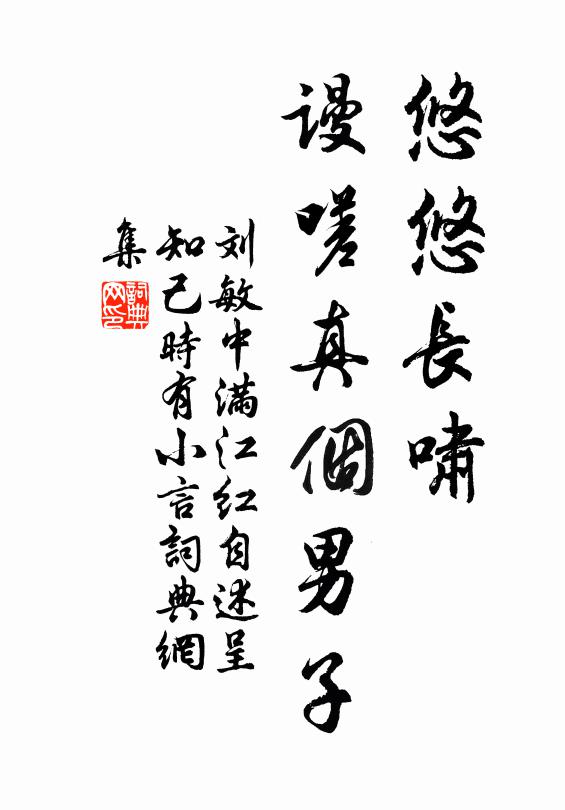 悠悠長嘯
謾嗟真個男子
刘敏中满江红自述呈
知己時有小言詞典網
集
詞典
网印